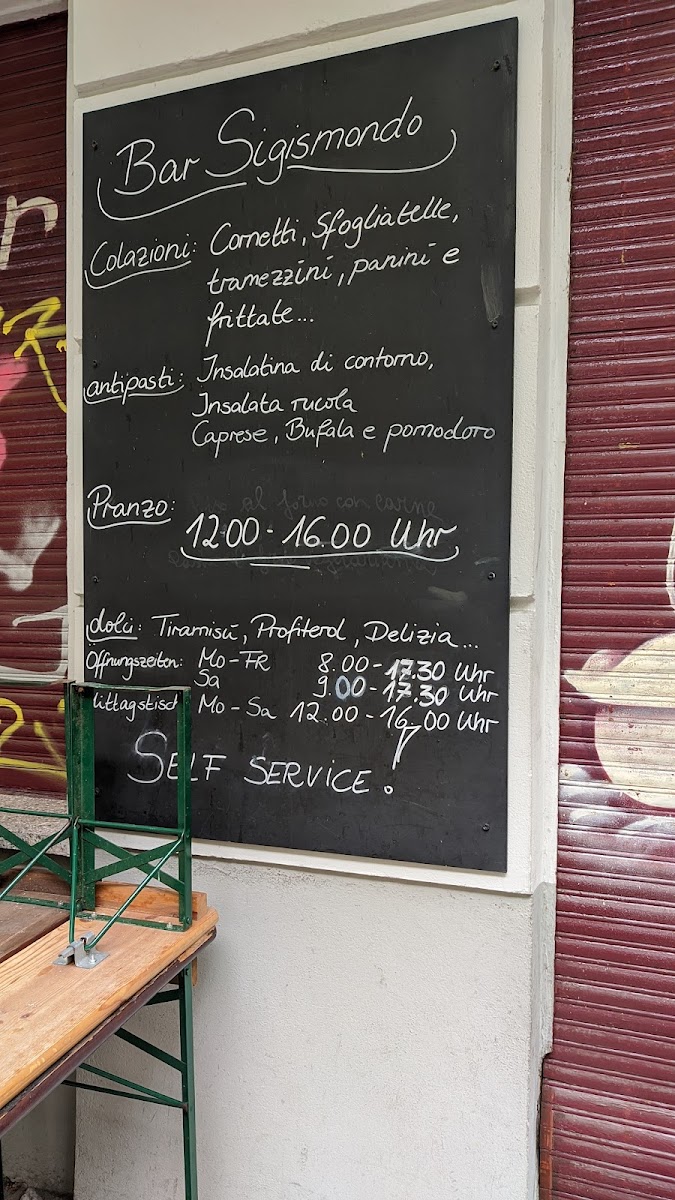 Bar Sigismondo
Colazioni: Cornetti, Sfogliatelle,
tramezzini, panini e
frittate...
antipasti: Insalatina di contorno,
Insalata rucola
Caprese, Bufala e pomodoro
al forno con carne
Pranzo: 12 00 - 16.00 Uhr
dolci: Tiramisù, Profiterol, Delizia...
Öffnungszeiten: Mo - FR 8.00 - 17.30 Uhr
Sa 9.00 - 17.30 Uhr
ittagstisch Mo - Sa 12.00 - 16.00 Uhr
SELF SERVICE!